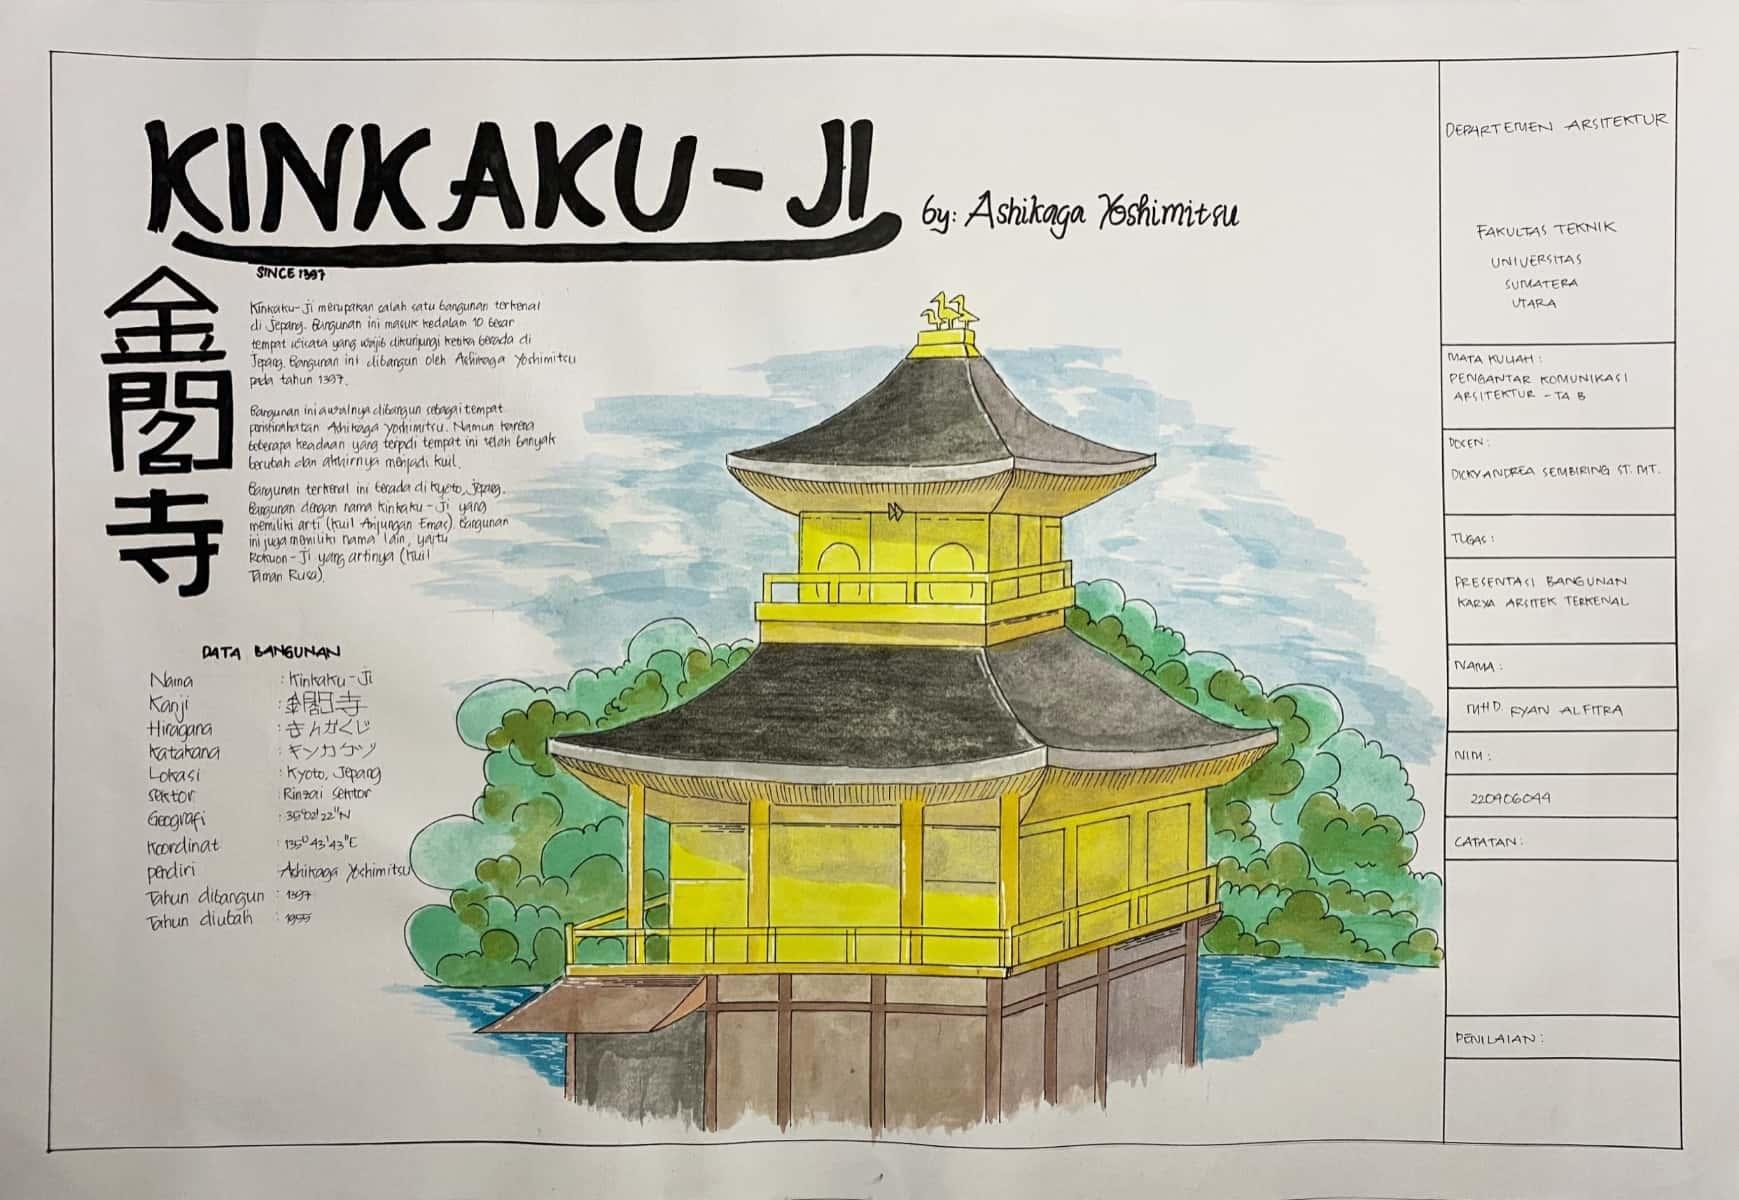 KINKAKU-JI
by: Ashikaga Yoshimitsu
SINCE 1397
金閣寺
Kinkaku-Ji merupakan salah satu bangunan terkenal
di Jepang. Bangunan ini masuk kedalam 10 besar
tempat wisata yang wajib dikunjungi ketika berada di
Jepang. Bangunan ini dibangun oleh Ashikaga Yoshimitsu
pada tahun 1397.
Bangunan ini awalnya dibangun sebagai tempat
peristirahatan Ashikaga Yoshimitsu. Namun karena
beberapa keadaan yang terjadi tempat ini telah banyak
berubah dan akhirnya menjadi kuil.
Bangunan terkenal ini berada di Kyoto, Jepang.
Bangunan dengan nama Kinkaku-Ji yang
memiliki arti (Kuil Anjungan Emas). Bangunan
ini juga memiliki nama lain, yaitu
Rokuon-Ji yang artinya (Kuil
Taman Rusa).
DATA BANGUNAN
Nama : Kinkaku-Ji
Kanji : 金閣寺
Hiragana : きんかくじ
Katakana : キンカクジ
Lokasi : Kyoto, Jepang
Sektor : Rinzai Sektor
Geografi : 35°02'22"N
Koordinat : 135°43'43"E
pendiri : Ashikaga Yoshimitsu
Tahun dibangun : 1397
Tahun diubah : 1955
DEPARTEMEN ARSITEKTUR
FAKULTAS TEKNIK
UNIVERSITAS
SUMATERA
UTARA
MATA KULIAH :
PENGANTAR KOMUNIKASI
ARSITEKTUR - TA B
DOSEN :
DICKY ANDREA SEMBIRING ST. MT.
TUGAS :
PRESENTASI BANGUNAN
KARYA ARSITEK TERKENAL
NAMA :
MHD. RYAN ALFITRA
NIM :
220906044
CATATAN :
PENILAIAN :